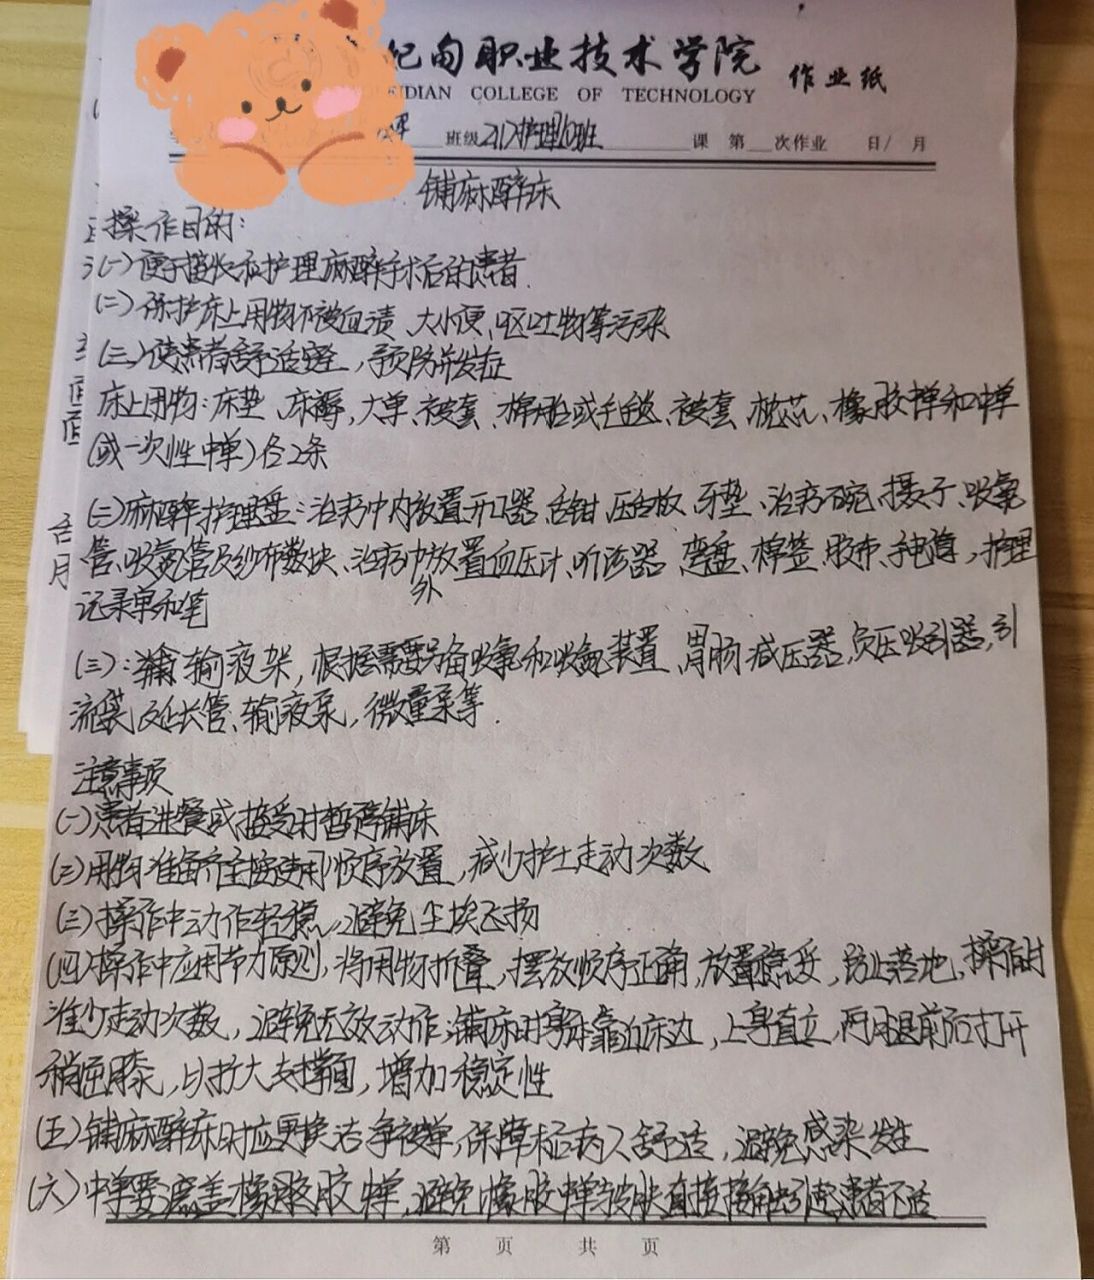 旬职业技术学院 作业纸
DIAN COLLEGE OF TECHNOLOGY
班级 212护理10班 课 第 次作业 日/ 月
铺麻醉床
操作目的:
(一)便于接收和护理麻醉手术后的患者.
(二)保护床上用物不被血渍、大小便、呕吐物等污染
(三)使患者舒适安全,预防并发症
床上用物:床垫、床褥,大单、被套、棉胎或毛毯、被套、枕芯、橡胶单和中单
(或一次性中单)各2条
(二)麻醉护理盘:治疗巾内放置开口器、舌钳、压舌板、牙垫、治疗碗、镊子、吸氧
管、吸氮管及纱布数块、治疗巾放置血压计、听诊器、弯盘、棉签、胶布、手电筒,护理
外
记录单和笔
(三):输液架,根据需要另备吸氧和吸氮装置、胃肠减压器,负压吸引器,引
流袋、延长管、输液泵,微量泵等.
注意事项
(一)患者进餐或接受时暂停铺床
(三)用物准备齐全按使用顺序放置,减少护士走动次数
(三)操作中动作轻稳,避免尘埃飞扬
(四)操作中应用节力原则,将用物折叠,摆放顺序正确,放置稳妥,防止落地,操作时
减少走动次数,避免无效动作,铺床时身体靠近床边,上身直立,两腿前后打开
稍屈膝,以扩大支撑面,增加稳定性
(五)铺麻醉床时应更换洁净被单,保障术后病人舒适,避免感染发生
(六)中单要遮盖橡胶单,避免橡胶中单与皮肤直接接触引起患者不适
第 页 共 页